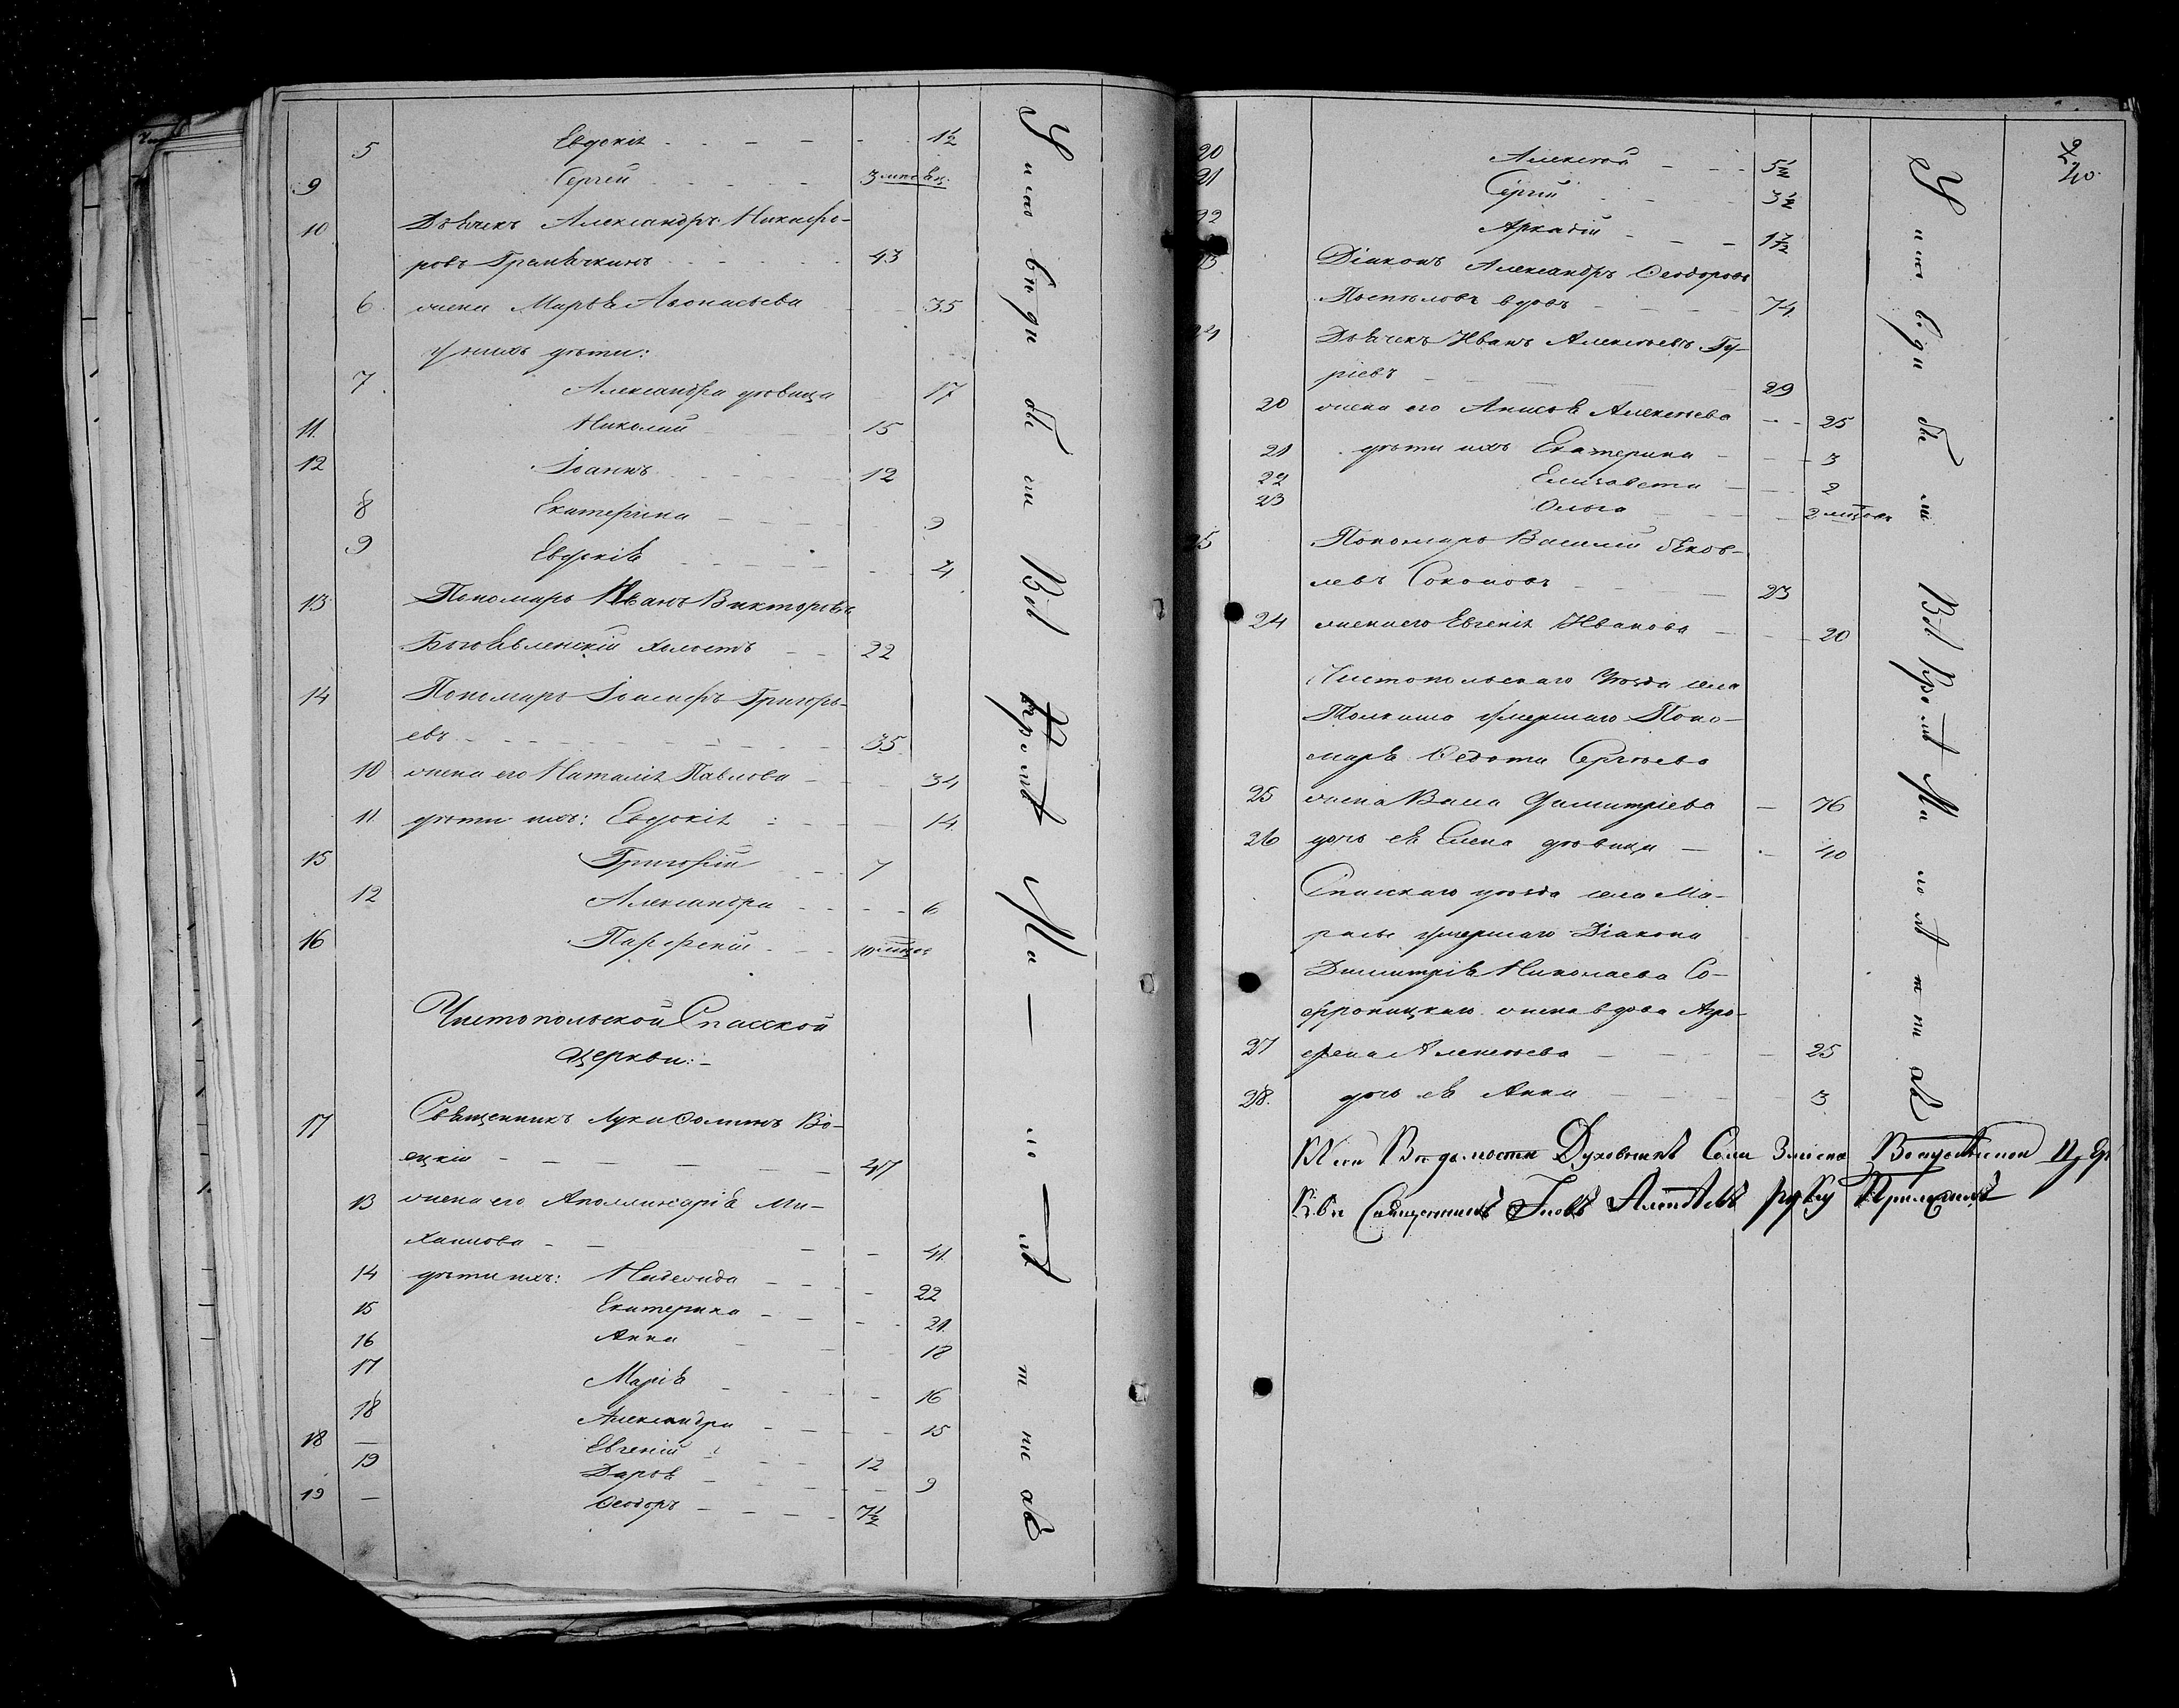 5 Евдокія 1½
9 Сергей 3 мѣсяц.
10 Дьячекъ Александръ Никифо-
ровъ Гремячкинъ 43
6 жена Марья Аѳонасьева 35
У нихъ дѣти:
7 Александра дѣвица 17
11 Николай 15
12 Іоаннъ 12
8 Екатерина 9
9 Евдокія 4
13 Пономарь Иванъ Викторовъ
Богоявленскій холостъ 22
14 Пономарь Іоасафъ Григорь-
евъ 35
10 жена его Наталія Павлова 34
11 дѣти ихъ: Евдокія 14
15 Григорій 7
12 Александра 6
16 Парфеній 10 мѣсяц
Чистопольской Спасской
Церкви:
17 Священникъ Лука Ѳоминъ Во-
ецкій 47
13 жена его Аполлинарія Ми-
хаилова 41
14 дѣти ихъ: Надежда 22
15 Екатерина 21
16 Анна 18
17 Марія 16
18 Александра 15
18 — Евгеній 12
19 Дарья 9
19 — Ѳеодоръ 7½
У исповѣди были Во храмѣ Ма-
240
20 Алексѣй 5½
21 Сергій 3½
22 Аркадій 1½
23 Діаконъ Александръ Ѳеодоровъ
Поспѣловъ вдовъ 74
24 Дьячекъ Иванъ Алексѣевъ Гу-
ріевъ 29
20 жена его Анисья Алексѣева 25
21 дѣти ихъ Екатерина 3
22 Елизавета 2
23 Ольга 2 мѣсяц
25 Пономарь Василій Яков-
левъ Соколовъ 23
24 жена его Евгенія Иванова 20
Чистопольскаго Уѣзда села
Толкиша умершаго Поно-
маря Ѳедота Сергѣева
25 жена Васса Димитріева 76
26 дочь ея Елена дѣвица 40
Спасскаго уѣзда села Ма-
расы умершаго Діакона
Димитрія Николаева Со-
фроницкаго жена вдова Агро-
27 фена Алексѣева 25
28 дочь ея Анна 3
Къ сей Вѣдомости Духовникъ Села Змѣева Церк-
Священникъ Іаковъ руку Приложилъ